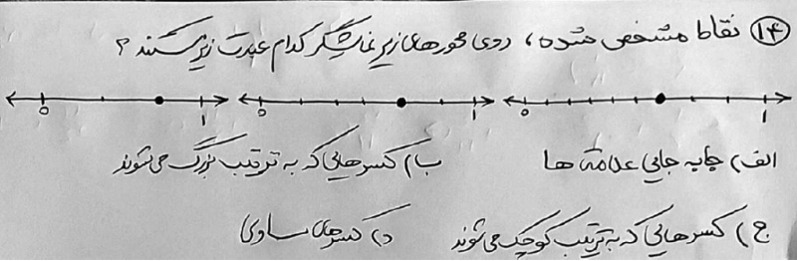 ۱۴) نقاط مشخص شده، روی محورهای زیر نمایشگر کدام عبارت زیر هستند؟
0 1 0 1 0 1
الف) جابه جایی علامت ها ب) کسرهایی که به ترتیب بزرگ می‌شوند
ج) کسرهایی که به ترتیب کوچک می‌شوند د) کسرهای مساوی